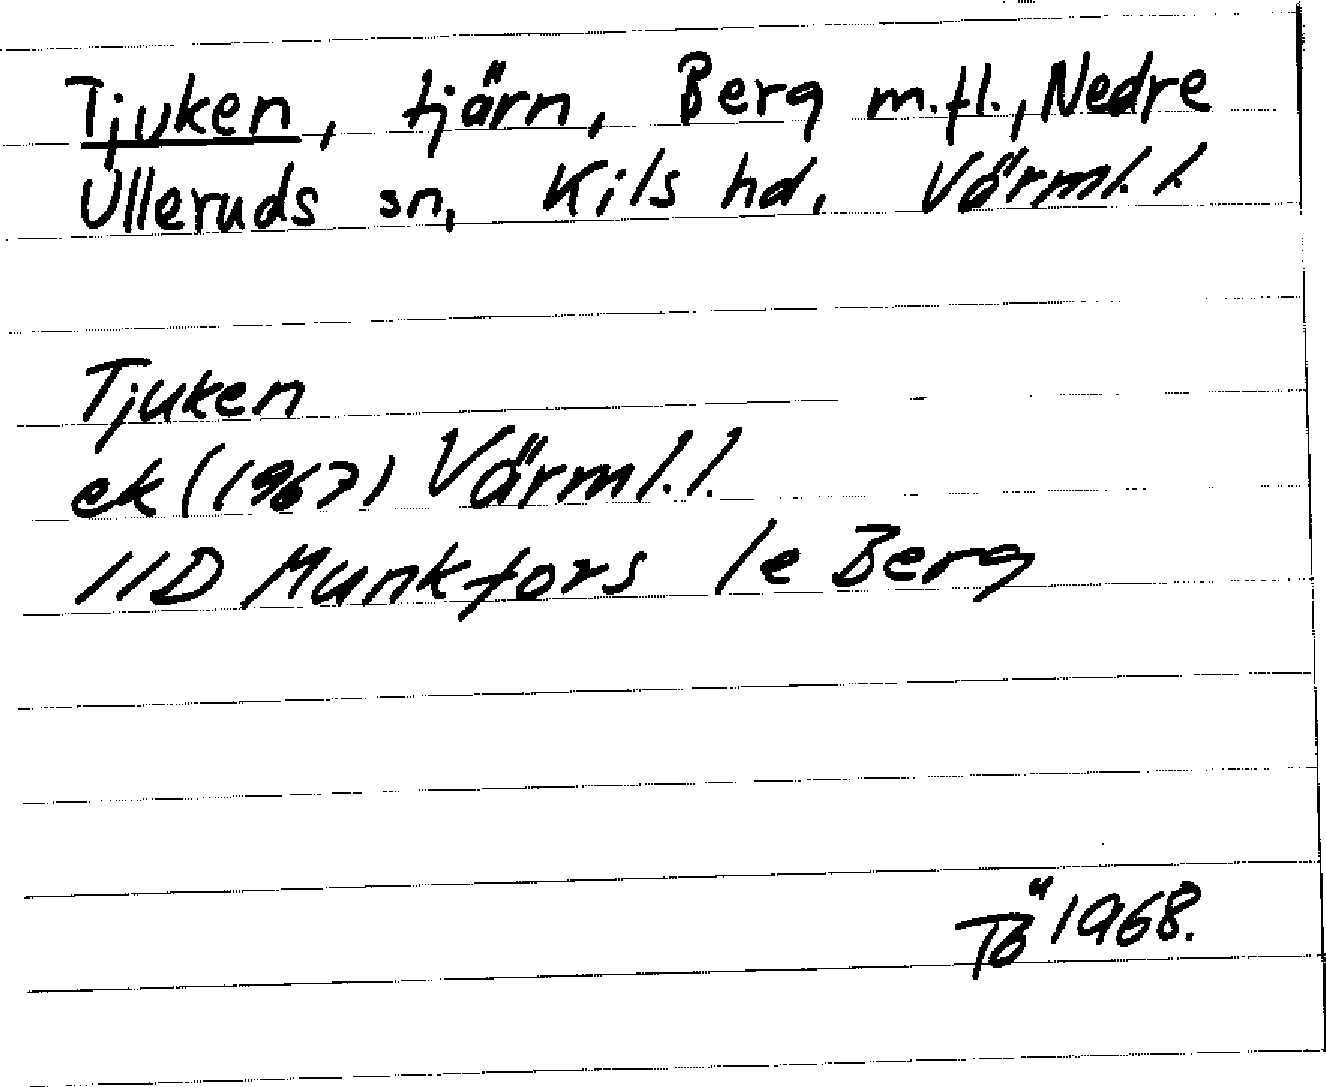 Tjuken, tjärn, Berg m.fl., Nedre
Ulleruds sn, Kils hd, Värml. l.
Tjuken
ek (1967) Värml. l.
11D Munkfors 1e Berg
TÖ 1968.